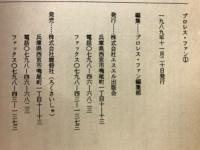 プロレス・ファン①
一九八九年十一月二十日発行
編集──プロレス・ファン編集部
発行──株式会社エスエル出版会
兵庫県西宮市鳴尾町一丁目十─十三
電話〇七九八─四六─六八二三
ファックス〇七九八─四三─一三七三
発売──株式会社鹿砦社（ろくさいしゃ）
兵庫県西宮市鳴尾町一丁目十─十三
電話〇七九八─四六─六八二三
ファックス〇七九八─四三─一三七三